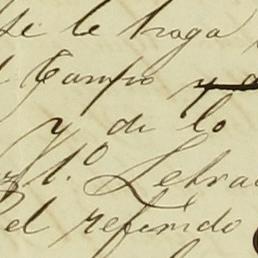 se le traga
Campo y a
y de lo
1º Letra
el referido